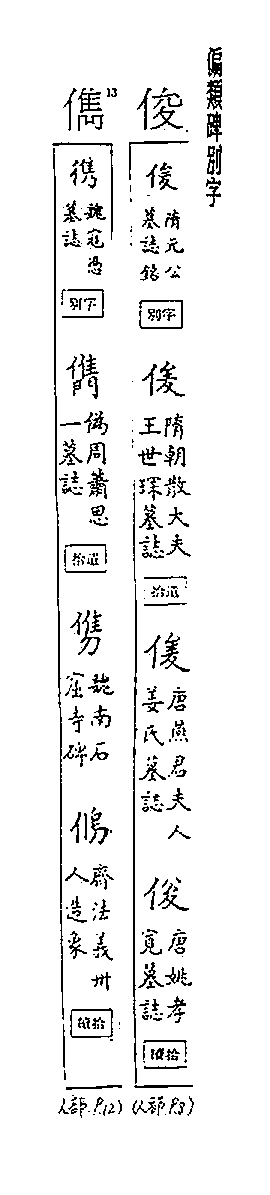 偏類碑別字
俊
俊 隋元公
墓誌銘
別字
隋朝散大夫
王世琛墓誌
拾遺
唐燕君夫人
姜氏墓誌
俊 唐姚孝
寬墓誌
續拾
(人部.P.8)
儁13
魏寇憑
墓誌
別字
偽周蕭思
一墓誌
拾遺
魏南石
窟寺碑
齊法義卅
人造象
續拾
(人部.P.12)